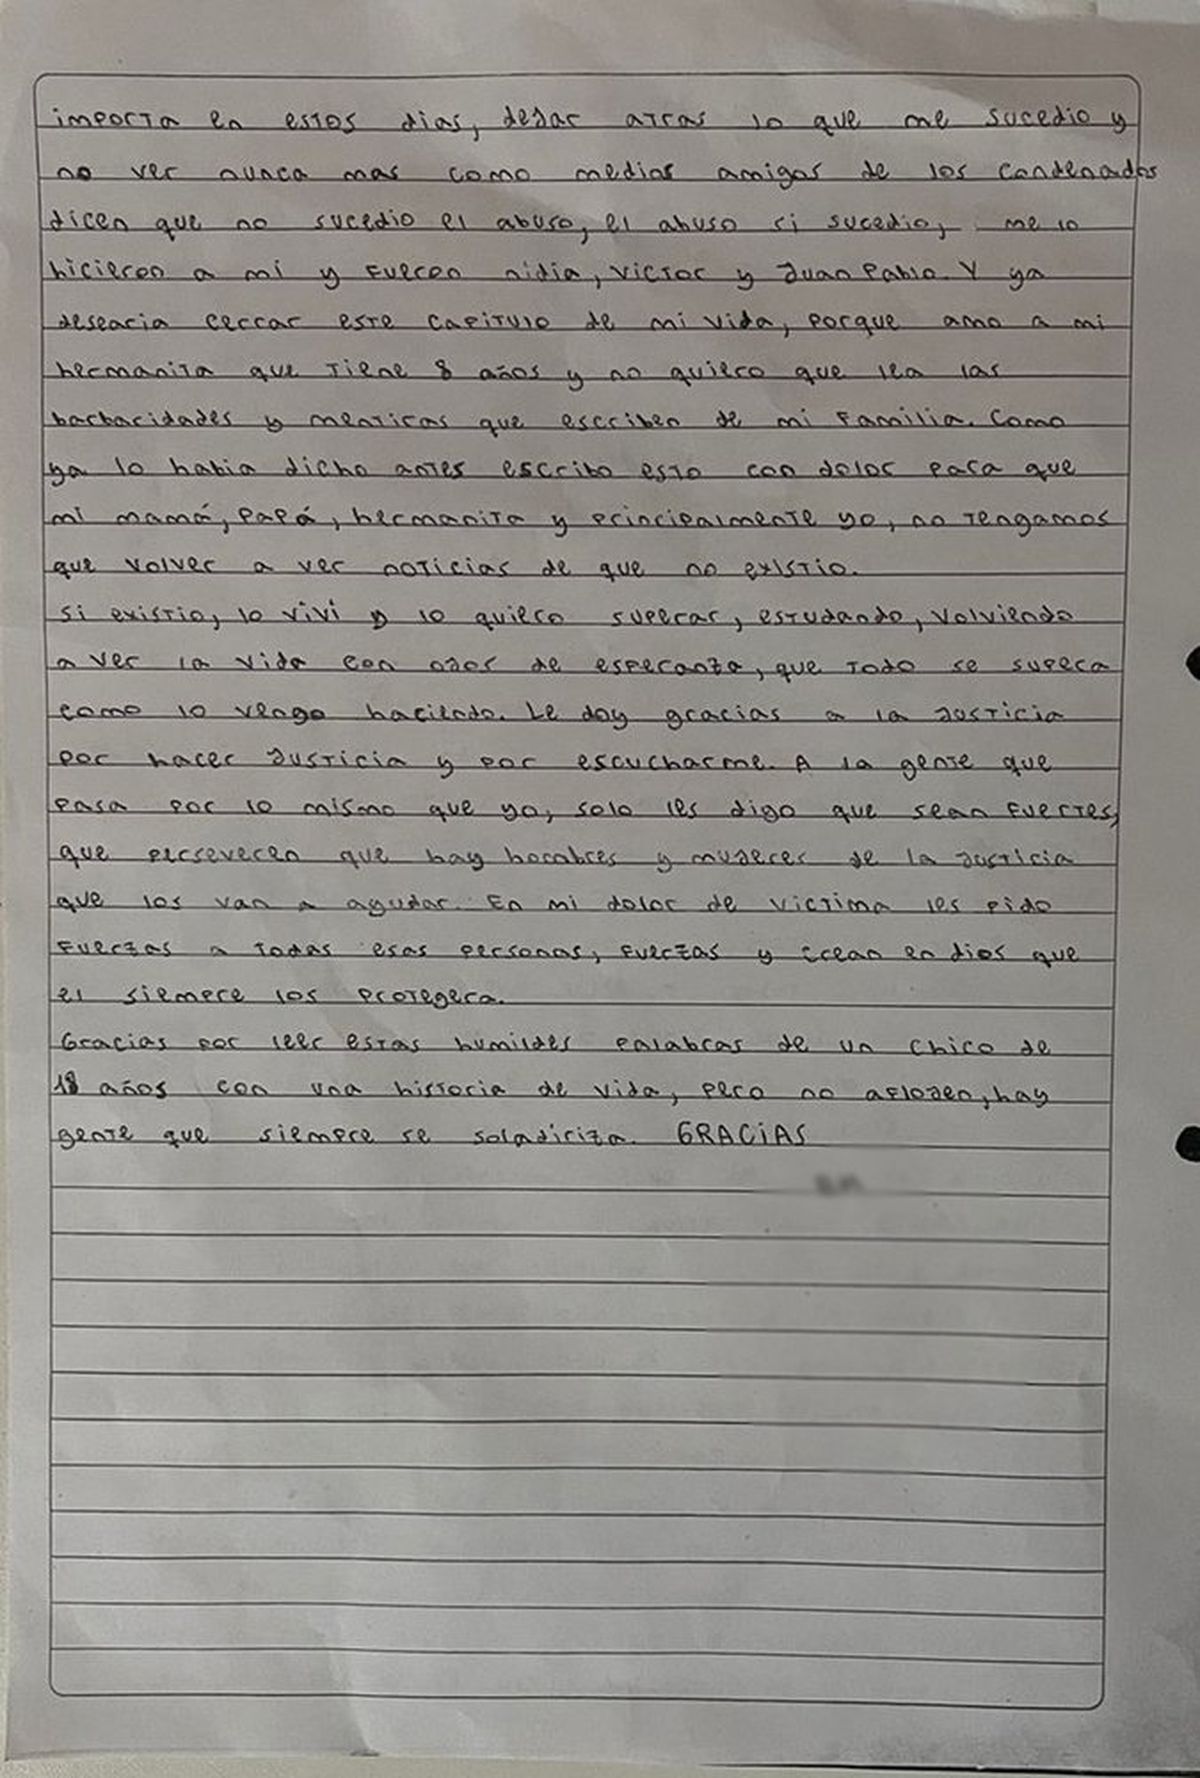 importa en estos dias, dejar atras lo que me sucedio y
no ver nunca mas como medios amigos de los condenados
dicen que no sucedio el abuso, el abuso si sucedio, me lo
hicieron a mi y fueron nidia, victor y Juan Pablo. Y ya
desearia cerrar este capitulo de mi vida, porque amo a mi
hermanita que tiene 8 años y no quiero que lea las
barbaridades y mentiras que escriben de mi familia. Como
ya lo habia dicho antes escribo esto con dolor para que
mi mamá, papá, hermanita y principalmente yo, no tengamos
que volver a ver noticias de que no existio.
si existio, lo vivi y lo quiero superar, estudando, volviendo
a ver la vida con ojos de esperanza, que todo se supera
como lo vengo haciendo. Le doy gracias a la justicia
por hacer justicia y por escucharme. A la gente que
pasa por lo mismo que yo, solo les digo que sean fuertes,
que perseveren que hay hombres y mujeres de la justicia
que los van a ayudar. En mi dolor de victima les pido
fuerzas a todas esas personas, fuerzas y crean en dios que
el siempre los protegera.
Gracias por leer estas humildes palabras de un chico de
18 años con una historia de vida, pero no aflojen, hay
gente que siempre se soladiriza. GRACIAS